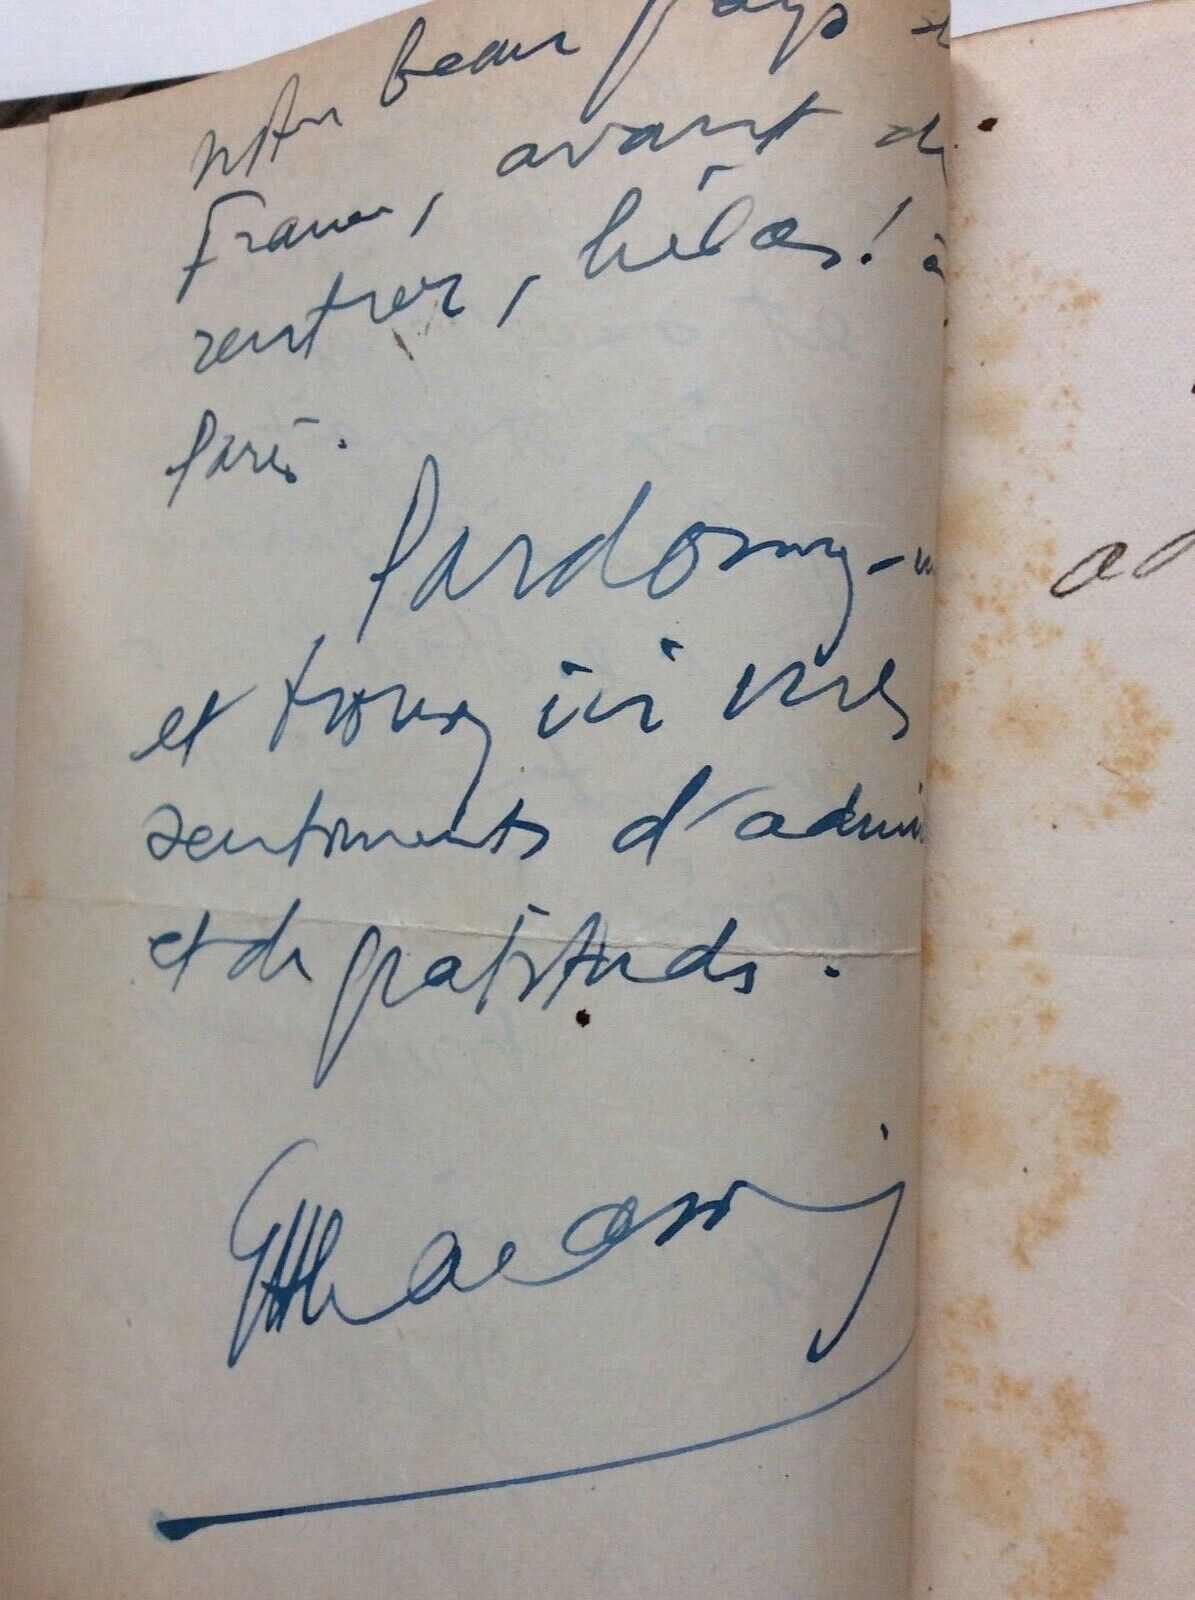 notre beau pays
France, avant de
rentrer, hélas! à
Paris.
Pardonnez-
et trouvez ici mes
sentiments d'admi
et de gratitude.